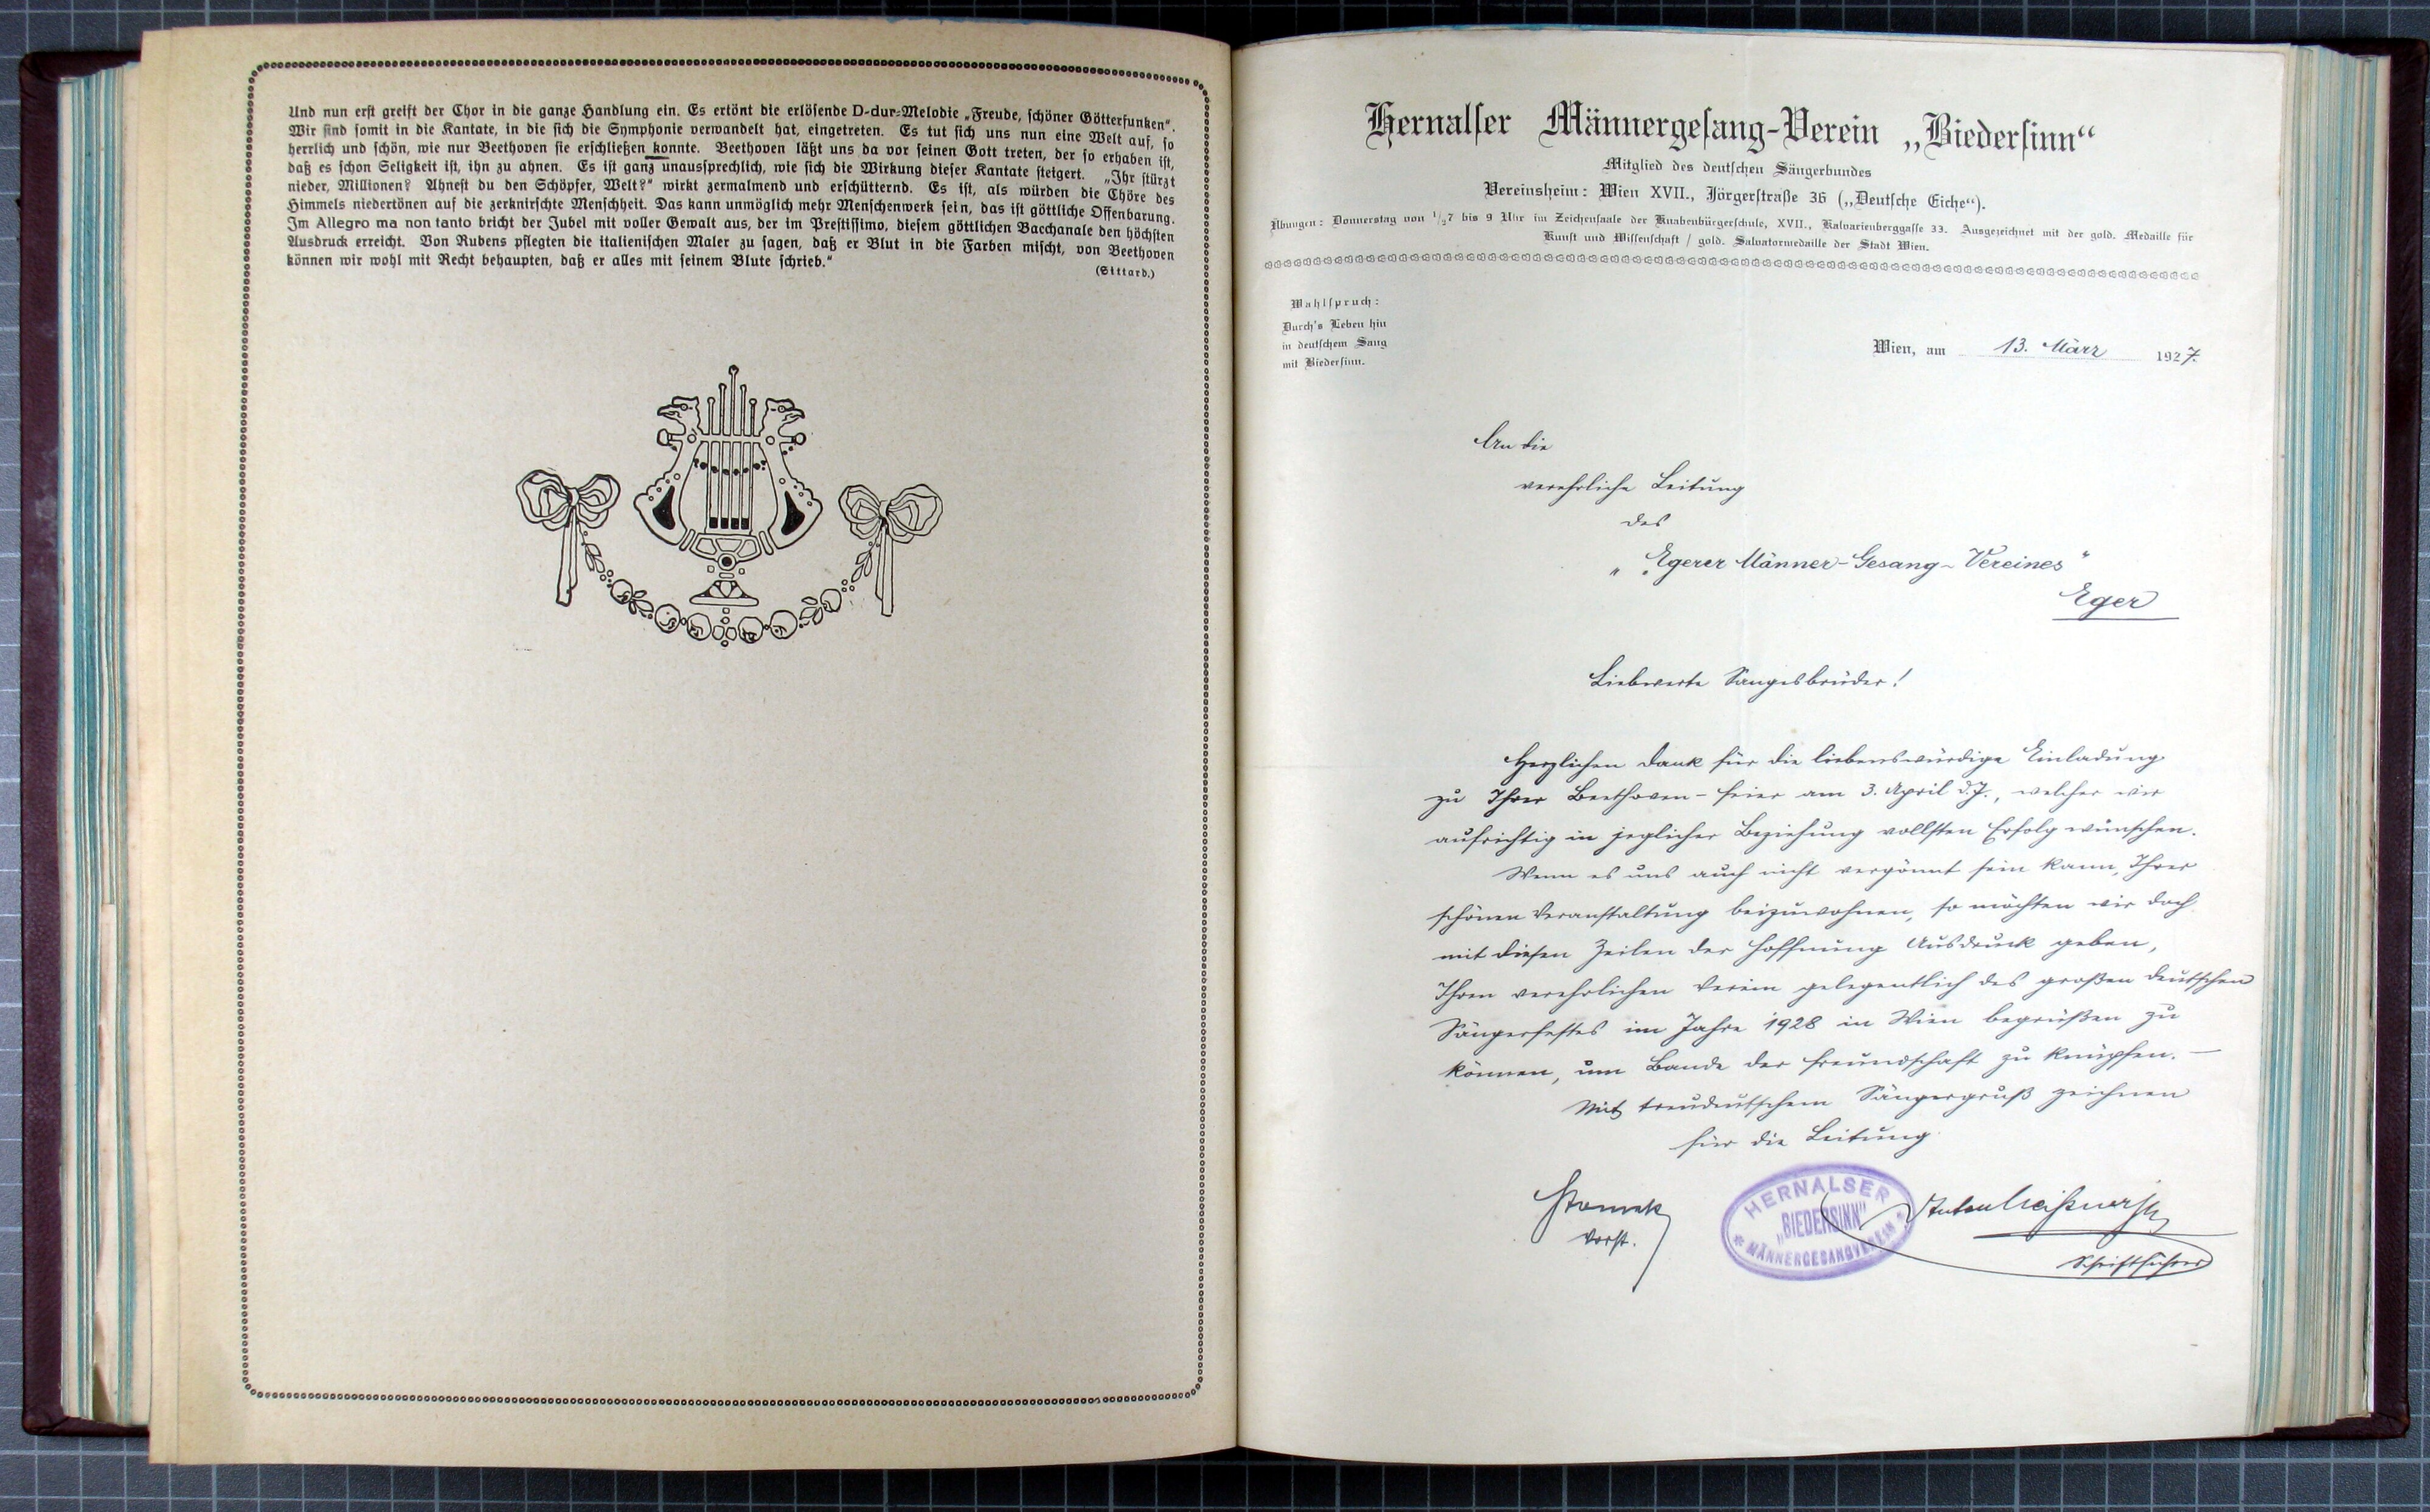 Und nun erst greift der Chor in die ganze Handlung ein. Es ertönt die erlösende D-dur-Melodie „Freude, schöner Götterfunken“.
Wir sind somit in die Kantate, in die sich die Symphonie verwandelt hat, eingetreten. Es tut sich uns nun eine Welt auf, so
herrlich und schön, wie nur Beethoven sie erschließen konnte. Beethoven läßt uns da vor seinen Gott treten, der so erhaben ist,
daß es schon Seligkeit ist, ihn zu ahnen. Es ist ganz unaussprechlich, wie sich die Wirkung dieser Kantate steigert. „Ihr stürzt
nieder, Millionen? Ahnest du den Schöpfer, Welt?“ wirkt zermalmend und erschütternd. Es ist, als würden die Chöre des
Himmels niedertönen auf die zerknirschte Menschheit. Das kann unmöglich mehr Menschenwerk sein, das ist göttliche Offenbarung.
Im Allegro ma non tanto bricht der Jubel mit voller Gewalt aus, der im Prestissimo, diesem göttlichen Bacchanale den höchsten
Ausdruck erreicht. Von Rubens pflegten die italienischen Maler zu sagen, daß er Blut in die Farben mischt, von Beethoven
können wir wohl mit Recht behaupten, daß er alles mit seinem Blute schrieb.“
(Sittard.)
Hernalser Männergesang-Verein „Biedersinn“
Mitglied des deutschen Sängerbundes
Vereinsheim: Wien XVII., Jörgerstraße 36 („Deutsche Eiche“).
Übungen: Donnerstag von 1/27 bis 9 Uhr im Zeichensaale der Knabenbürgerschule, XVII., Kalvarienberggasse 33. Ausgezeichnet mit der gold. Medaille für
Kunst und Wissenschaft / gold. Salvatormedaille der Stadt Wien.
Wahlspruch:
Durch's Leben hin
in deutschem Sang
mit Biedersinn.
Wien, am 13. März 1927.
An die
verehrliche Leitung
des
„Egerer Männer-Gesang-Vereines“
Eger
Liebwerte Sangesbrüder!
Herzlichen Dank für die liebenswürdige Einladung
zu Ihrer Beethoven-feier am 3. April d.J., welcher wir
aufrichtig in jeglicher Beziehung vollsten Erfolg wünschen.
Wenn es uns auch nicht vergönnt sein kann, Ihrer
schönen Veranstaltung beizuwohnen, so möchten wir doch
mit diesen Zeilen der Hoffnung Ausdruck geben,
Ihren verehrlichen Verein gelegentlich des großen deutschen
Sängerfestes im Jahre 1928 in Wien begrüßen zu
können, um Bande der Freundschaft zu knüpfen. —
Mit treudeutschem Sängergruß zeichnen
für die Leitung
Vorst.
HERNALSER
„BIEDERSINN“
* MÄNNERGESANGVEREIN *
Anton
Schriftführer